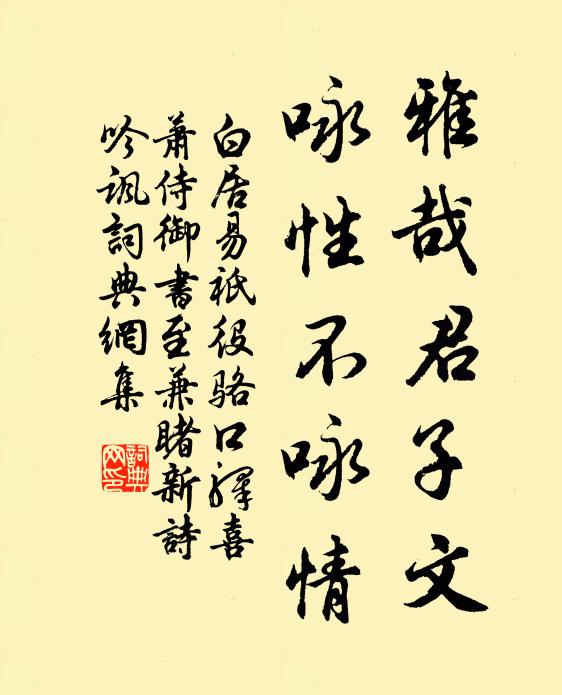 雅哉君子文
咏性不咏情
白居易祇役骆口驿喜
萧侍御書至兼睹新詩
吟讽詞典網集
詞典網印